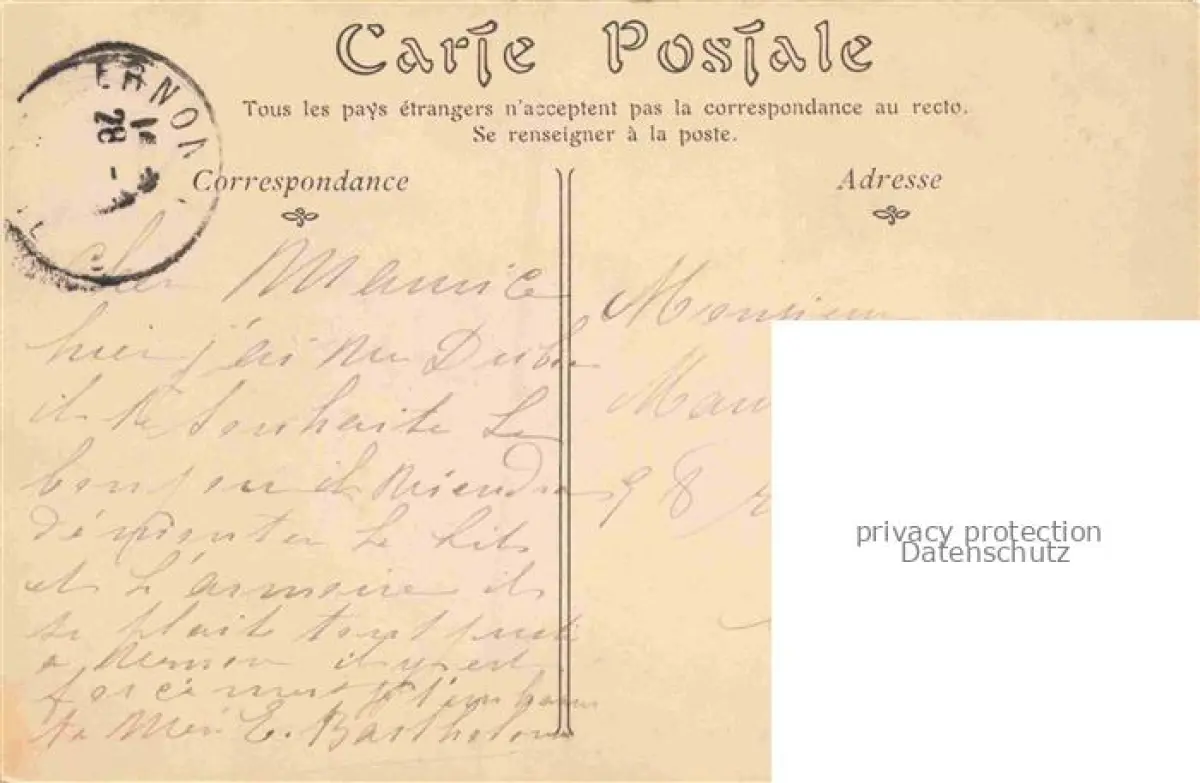 Carte Postale
Tous les pays étrangers n'acceptent pas la correspondance au recto.
Se renseigner à la poste.
ERNON
28
Correspondance
Adresse
Cher Maurice
hier j'ai vu
il te souhaite le
bonjour il viendra
démonter le lits
et l'armoire il
se plait tout
a Vernon il y est
forcé
ta Mère E. Bartholom
Monsieur
Mau
98 r
privacy protection
Datenschutz